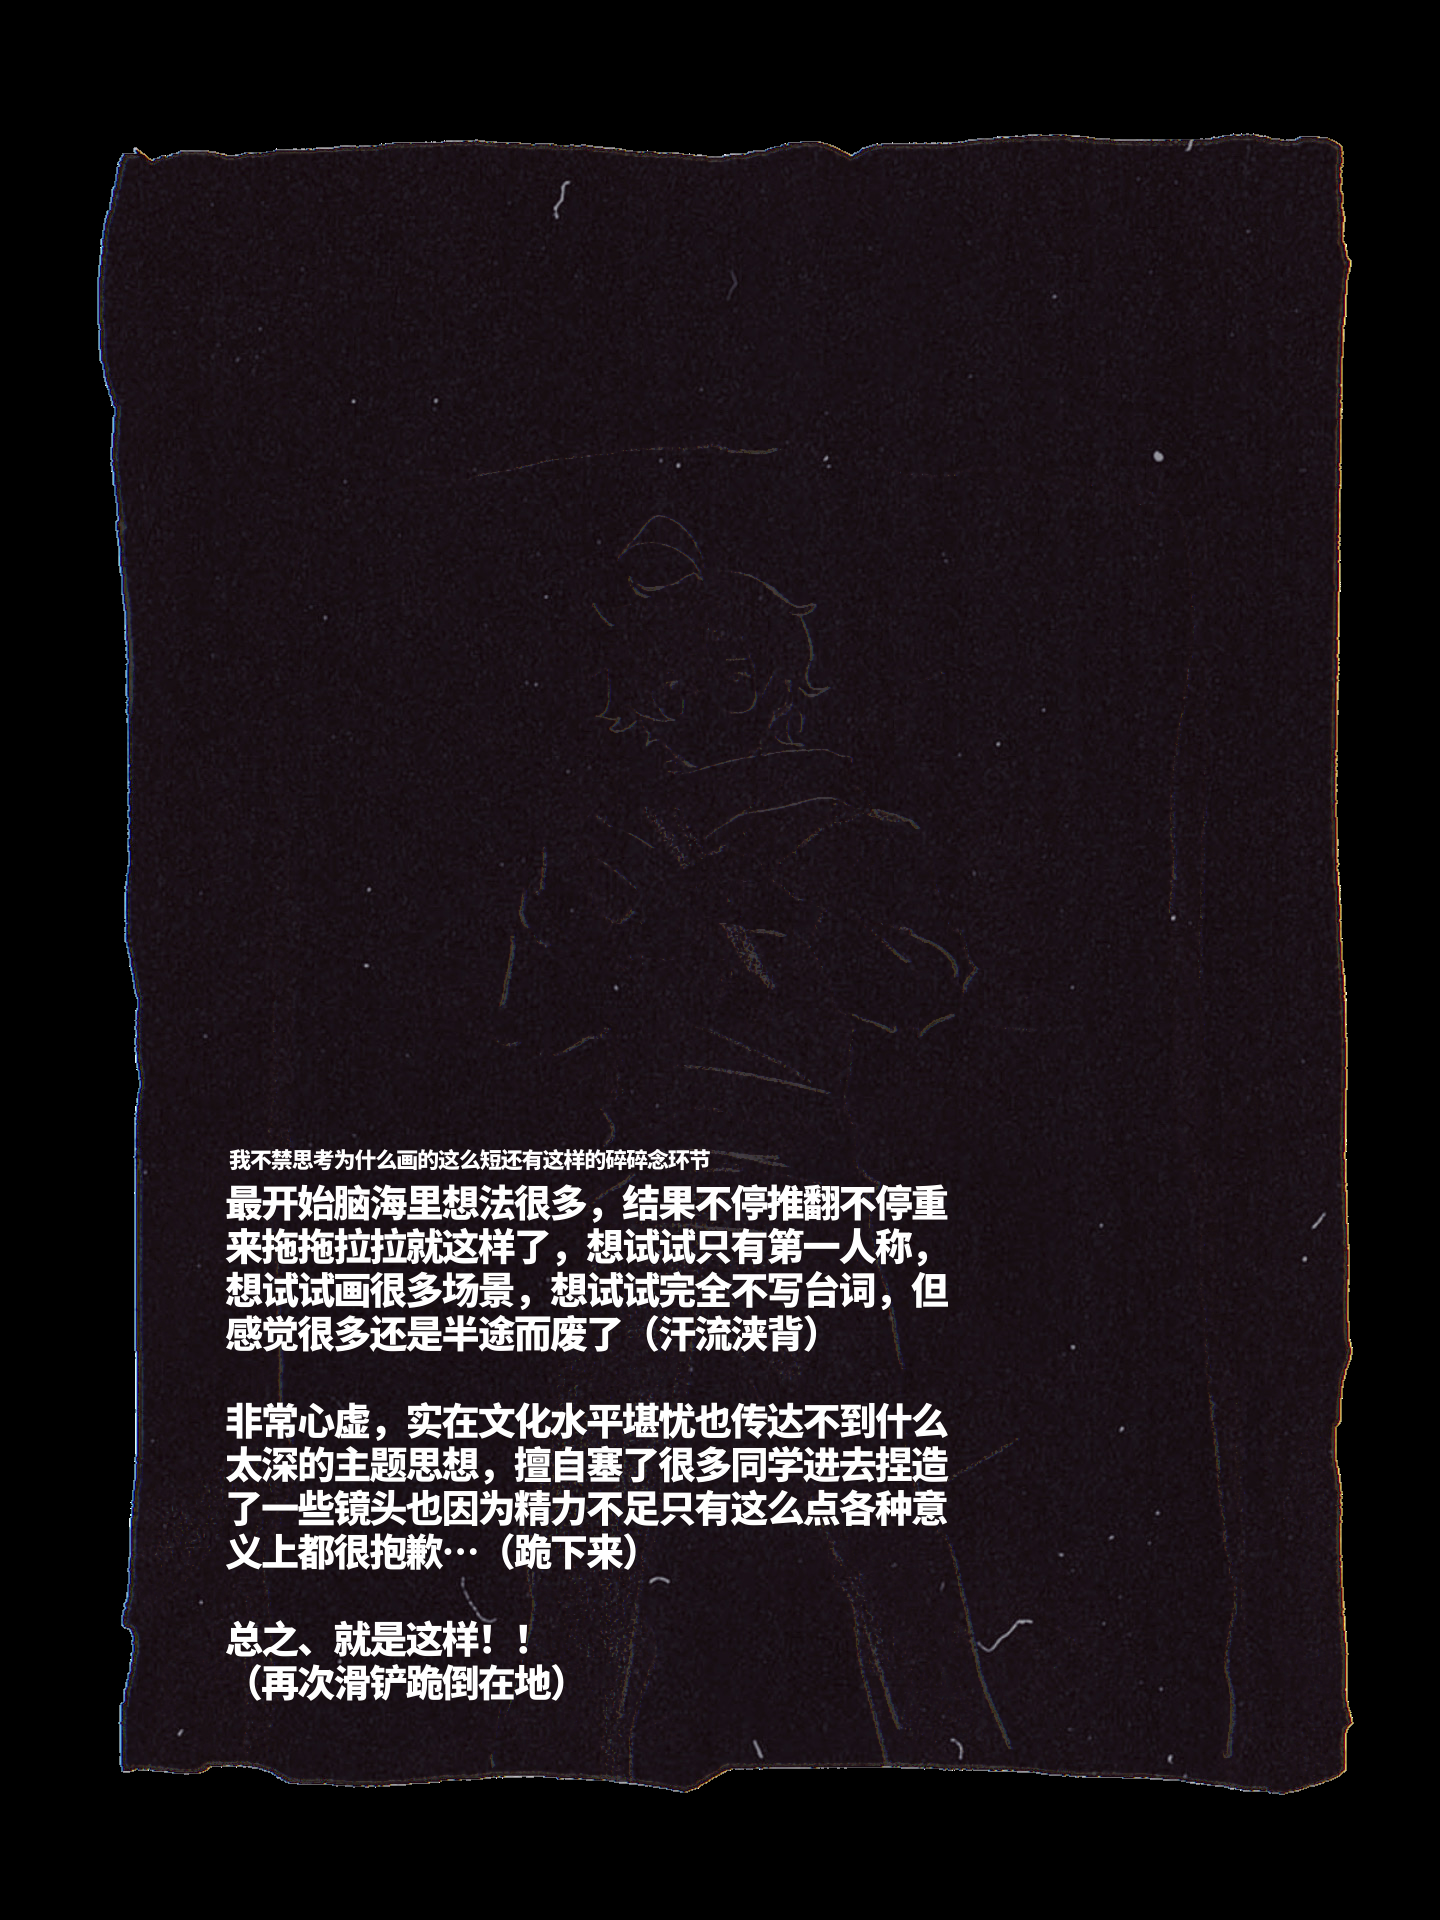 我不禁思考为什么画的这么短还有这样的碎碎念环节
最开始脑海里想法很多，结果不停推翻不停重
来拖拖拉拉就这样了，想试试只有第一人称，
想试试画很多场景，想试试完全不写台词，但
感觉很多还是半途而废了（汗流浃背）
非常心虚，实在文化水平堪忧也传达不到什么
太深的主题思想，擅自塞了很多同学进去捏造
了一些镜头也因为精力不足只有这么点各种意
义上都很抱歉…（跪下来）
总之、就是这样！！
（再次滑铲跪倒在地）